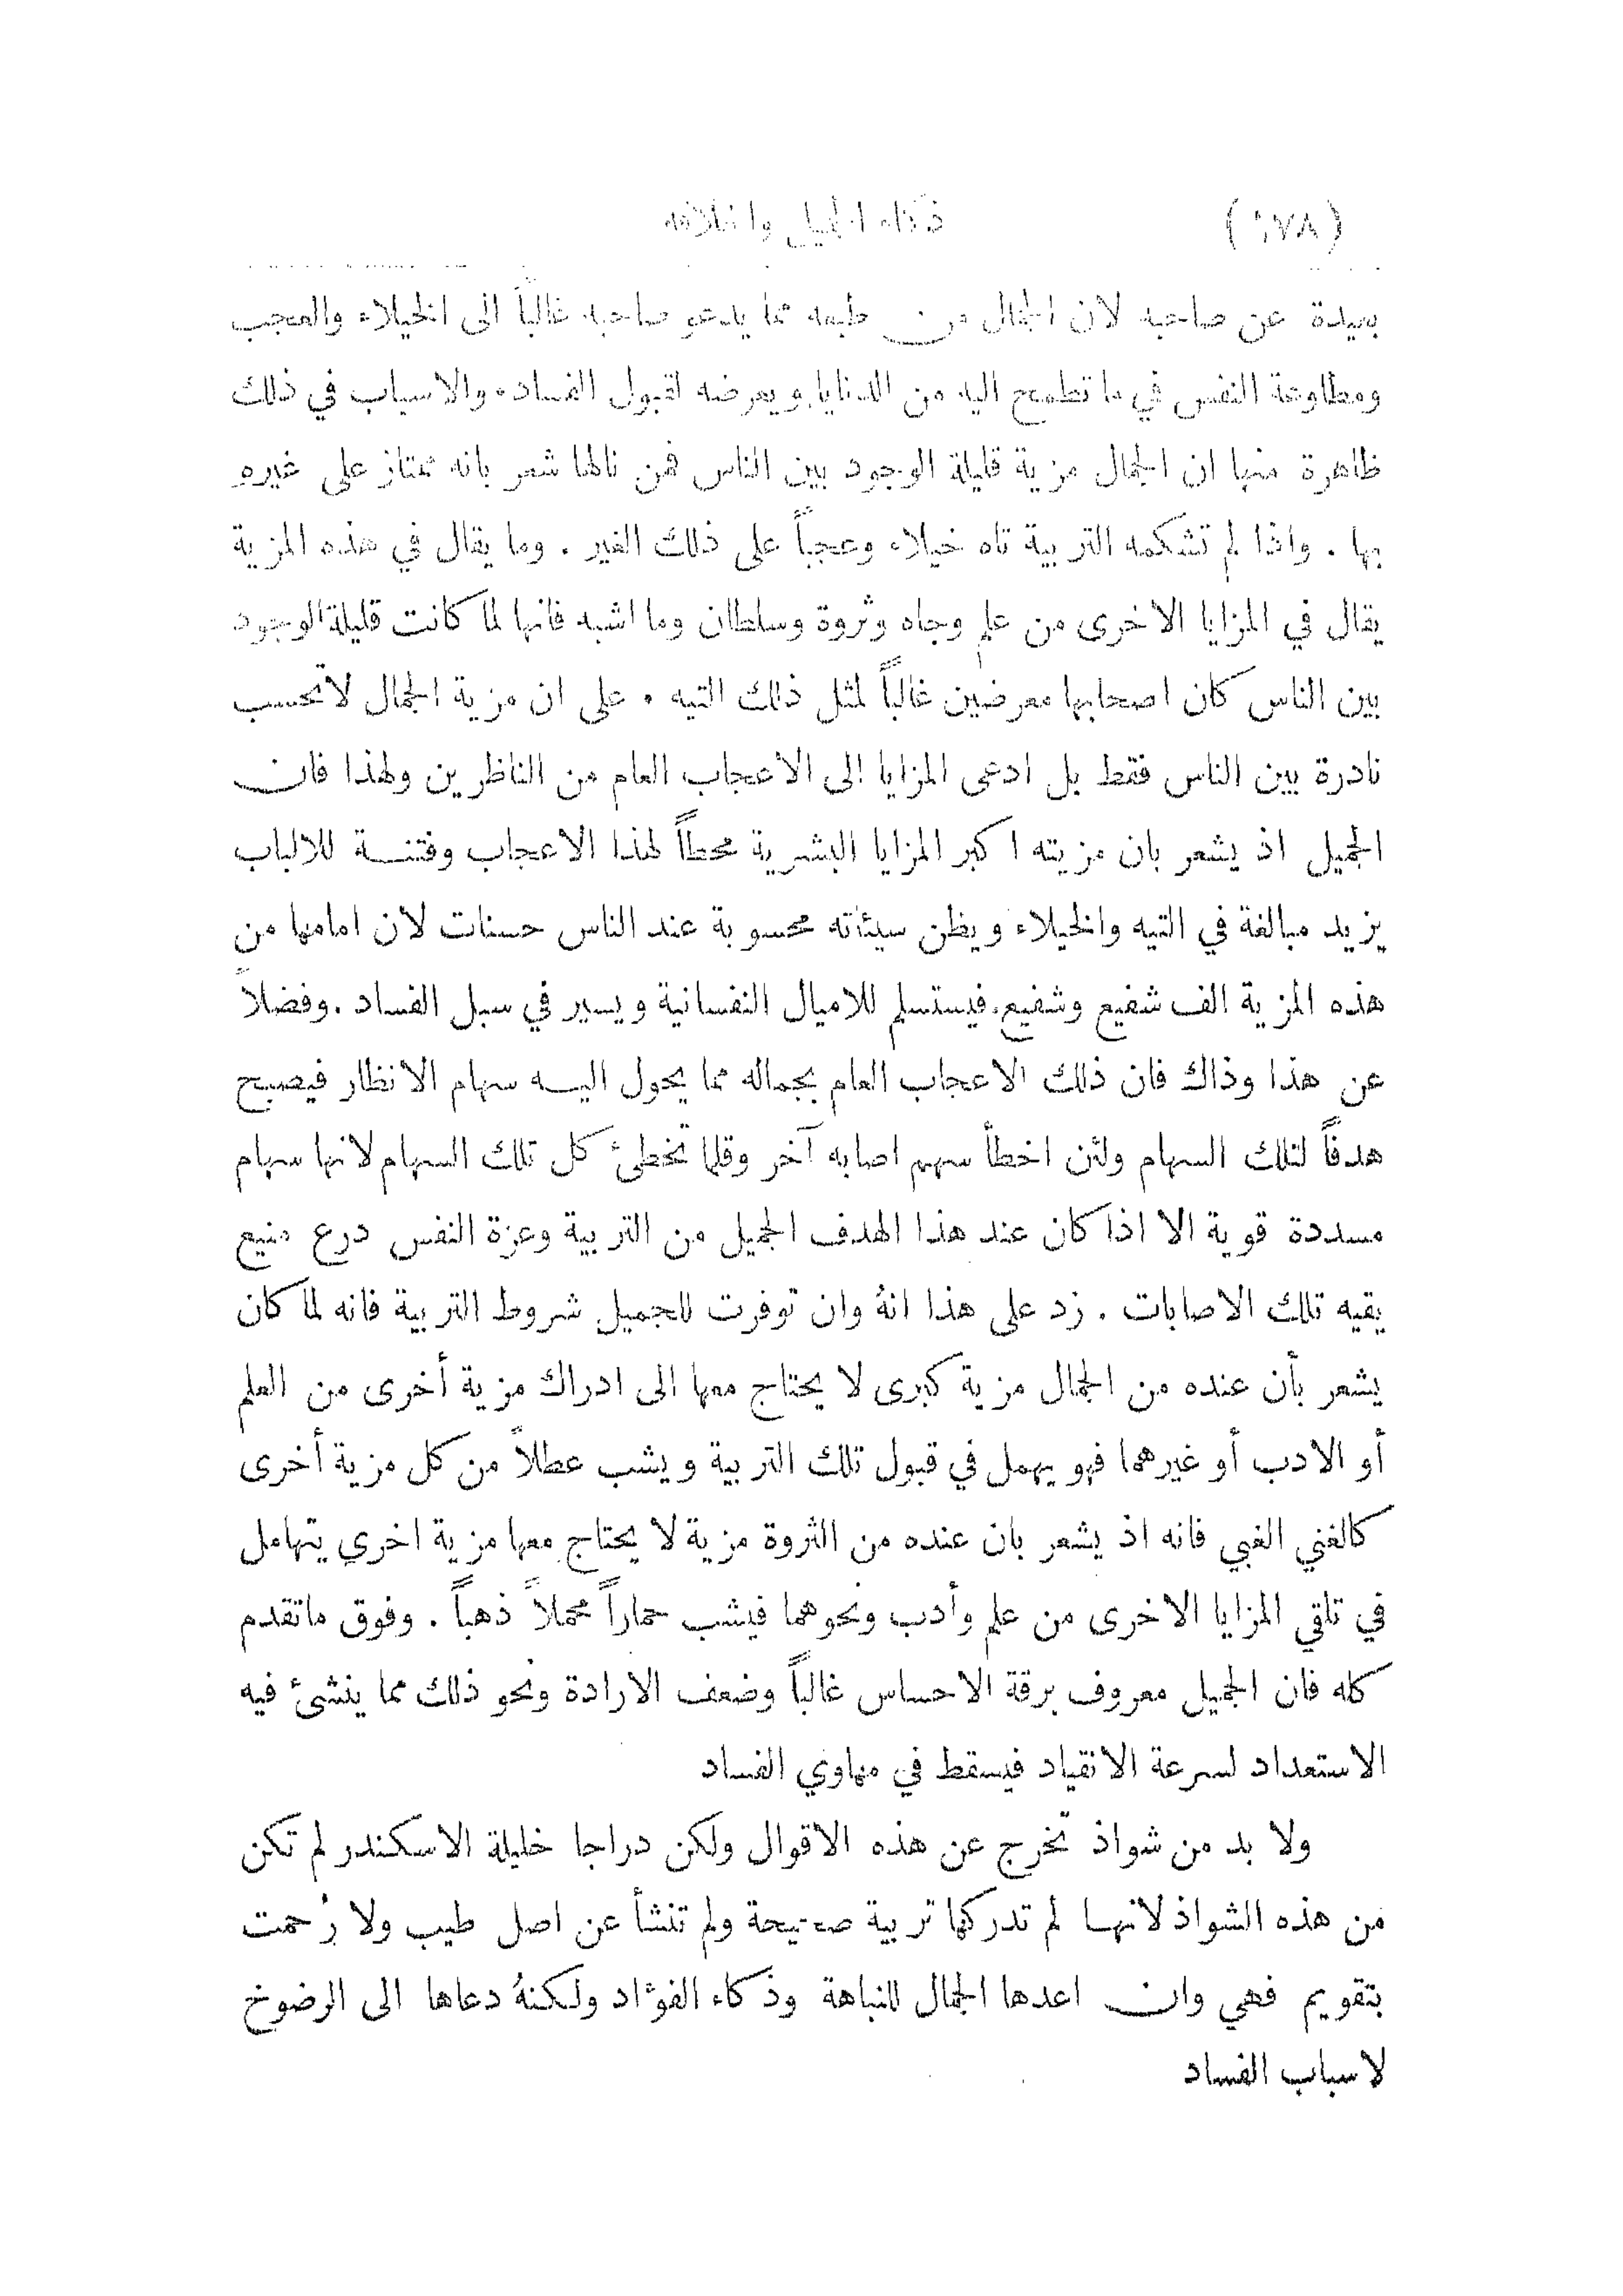 ذكاء الجميل واخلاقه
بعيدة عن صاحبه لان الجمال من طبعه مما يدعو صاحبه غالباً الى الخيلاء والعجب
ومطاوعة النفس في ما تطمح اليه من الدنايا ويعرضه لقبول الفساد. والاسباب في ذلك
ظاهرة منها ان الجمال مزية قليلة الوجود بين الناس فمن نالها شعر بانه ممتاز على غيره
بها . واذا لم تشكمه التربية تاه خيلاء وعجباً على ذلك الغير . وما يقال في هذه المزية
يقال في المزايا الاخرى من علم وجاه وثروة وسلطان وما اشبه فانها لما كانت قليلة الوجود
بين الناس كان اصحابها معرضين غالباً لمثل ذلك التيه . على ان مزية الجمال لا تحسب
نادرة بين الناس فقط بل ادعى المزايا الى الاعجاب العام من الناظرين ولهذا فان
الجميل اذ يشعر بان مزيته اكبر المزايا البشرية محطاً لهذا الاعجاب وفتنة للالباب
يزيد مبالغة في التيه والخيلاء ويظن سيئاته محسوبة عند الناس حسنات لان امامها من
هذه المزية الف شفيع وشفيع. فيستسلم للاميال النفسانية ويسير في سبل الفساد . وفضلاً
عن هذا وذاك فان ذلك الاعجاب العام بجماله مما يحول اليه سهام الانظار فيصبح
هدفاً لتلك السهام ولئن اخطأ سهم اصابه آخر وقلما تخطئ كل تلك السهام لانها سهام
مسددة قوية الا اذا كان عند هذا الهدف الجميل من التربية وعزة النفس درع منيع
يقيه تلك الاصابات . زد على هذا انهُ وان توفرت للجميل شروط التربية فانه لما كان
يشعر بأن عنده من الجمال مزية كبرى لا يحتاج معها الى ادراك مزية أخرى من العلم
أو الادب أو غيرهما فهو يهمل في قبول تلك التربية ويشب عطلاً من كل مزية أخرى
كالغني الغبي فانه اذ يشعر بان عنده من الثروة مزية لا يحتاج معها مزية اخري يتهامل
في تلقي المزايا الاخرى من علم وأدب ونحوهما فيشب حماراً محملاً ذهباً . وفوق ماتقدم
كله فان الجميل معروف برقة الاحساس غالباً وضعف الارادة ونحو ذلك مما ينشئ فيه
الاستعداد لسرعة الانقياد فيسقط في مهاوي الفساد
ولا بد من شواذ تخرج عن هذه الاقوال ولكن دراجا خليلة الاسكندر لم تكن
من هذه الشواذ لانها لم تدركها تربية صحيحة ولم تنشأ عن اصل طيب ولا رُحمت
بتقويم فهي وان اعدها الجمال للنباهة وذكاء الفؤاد ولكنهُ دعاها الى الرضوخ
لاسباب الفساد